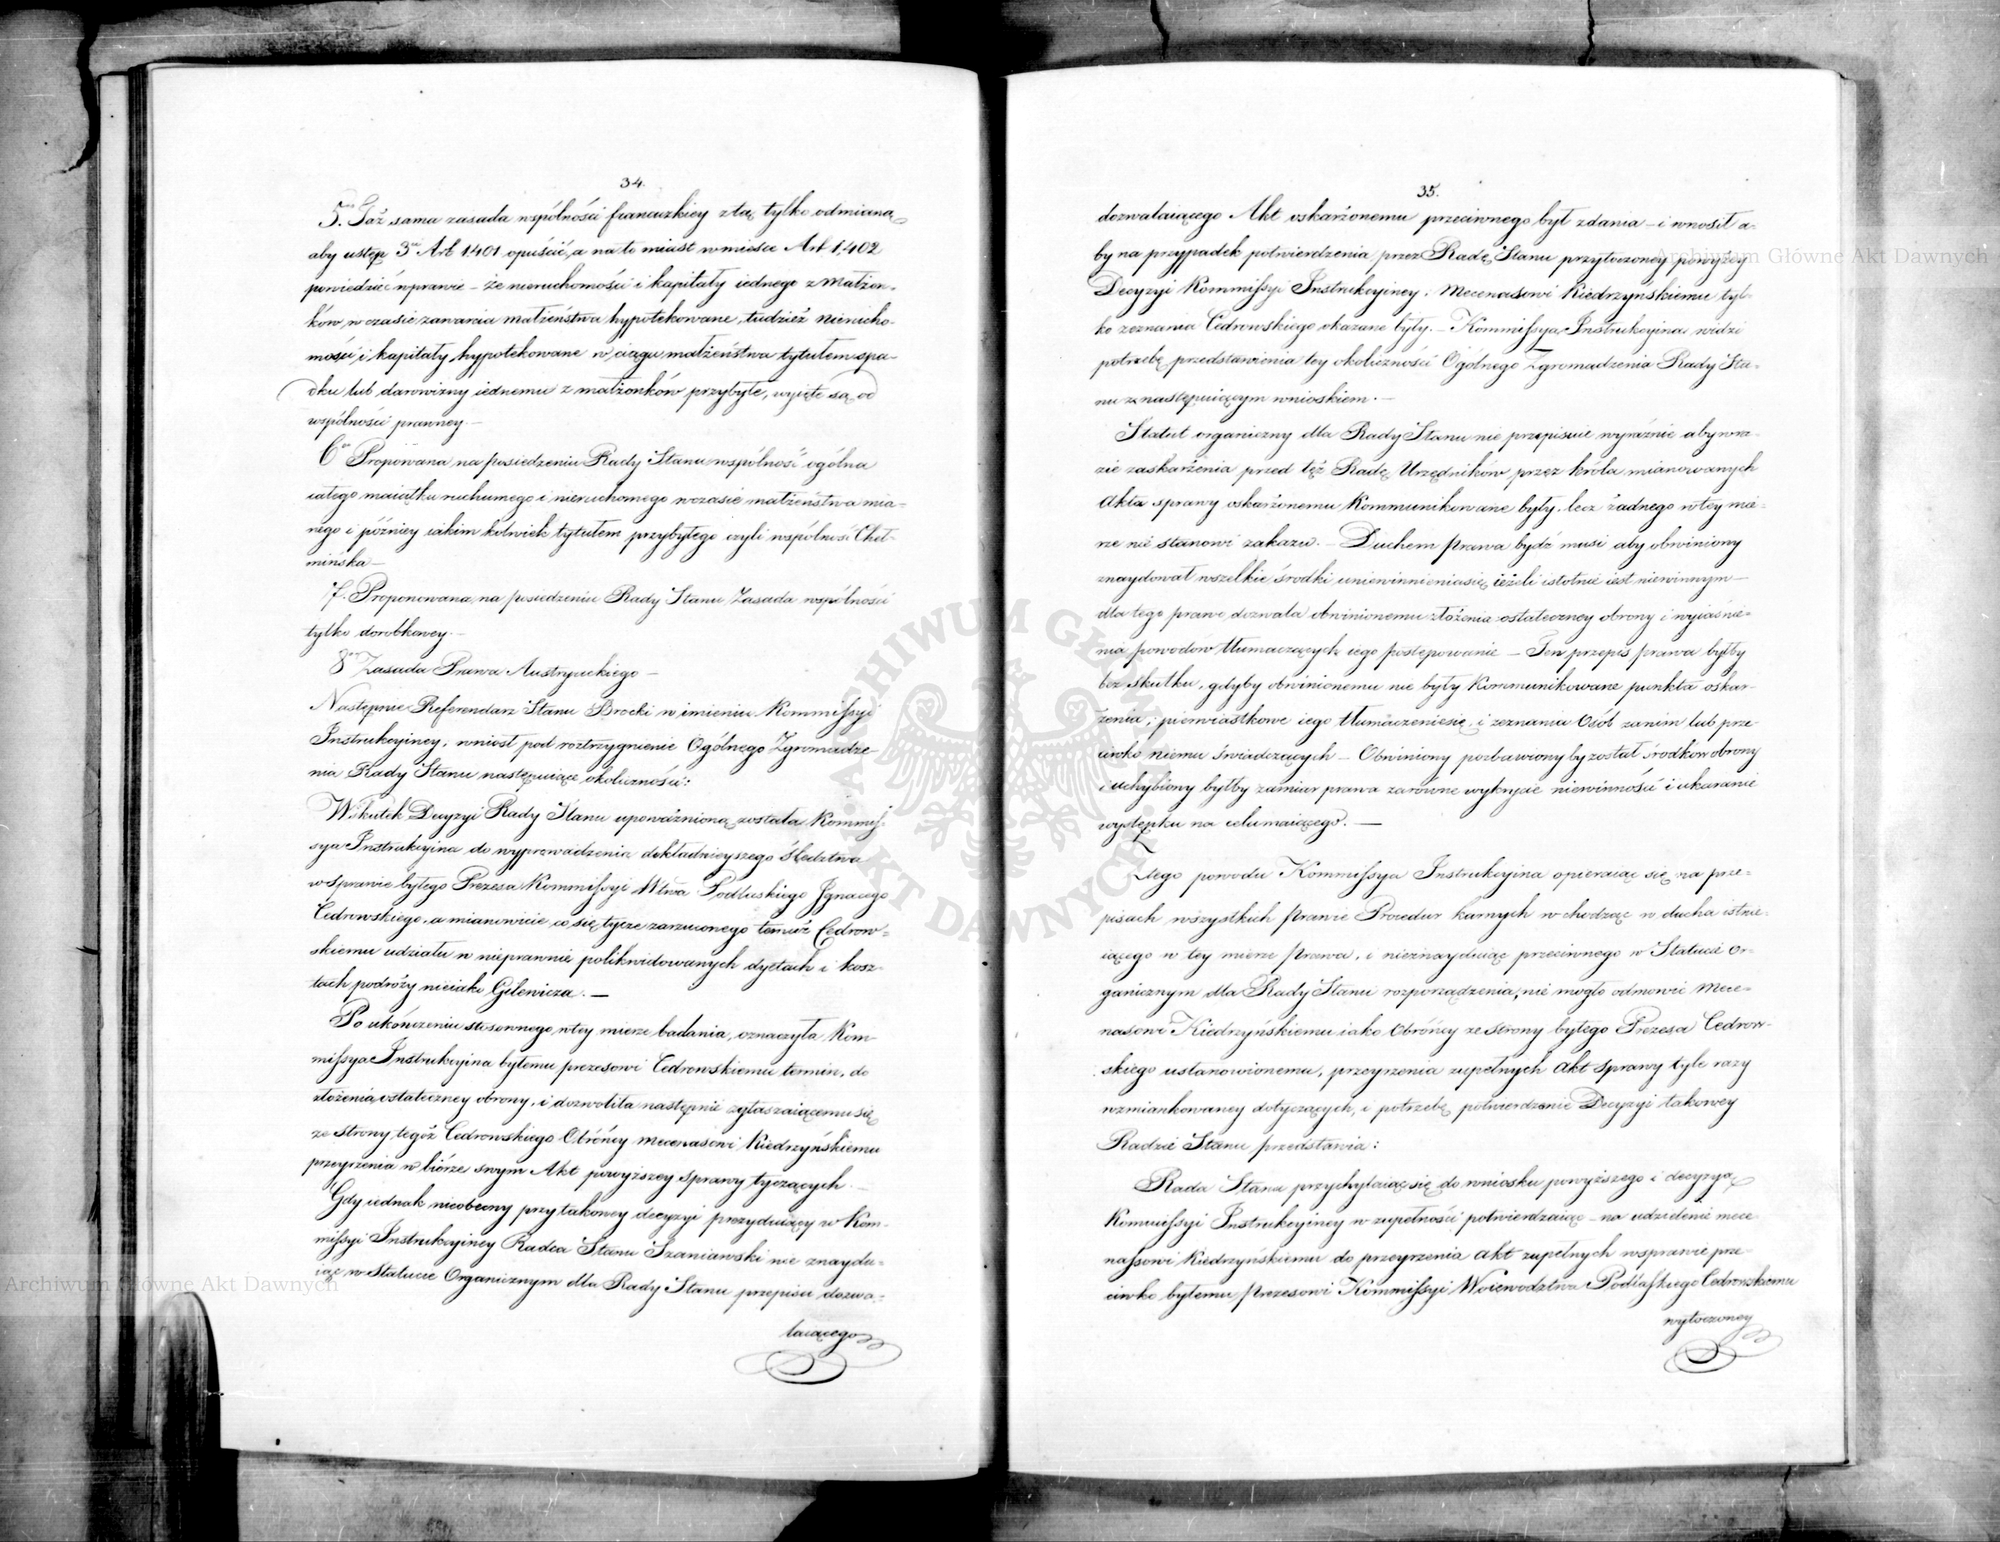 34.
5. Taż sama zasada wspólności francuzkiey z tą tylko odmianą
aby ustęp 3. Art 1401 opuścić, a na to miast w mieście Art 1,402
powiedzieć w prawie – że nieruchomości i kapitały iednego z Małżon-
ków w czasie zawarcia małżeństwa hypotekowane, tudzież nierucho-
mości i kapitały hypotekowane w ciągu małżeństwa tytułem spa-
dku lub darowizny iednemu z małżonków przybyłe, wyięte są od
wspólności prawney –
6. Proponowana na posiedzeniu Rady Stanu wspólność ogólna
całego maiątku ruchomego i nieruchomego w czasie małżeństwa mia-
nego i późniey iakim kolwiek tytułem przybyłego czyli wspólność Cheł-
mińska –
7. Proponowana na posiedzeniu Rady Stanu Zasada wspólności
tylko dorobkowey. –
8. Zasada Prawa Austryackiego –
Następnie Referendarz Stanu Brocki w imieniu Kommissyi
Instrukcyiney, wniósł pod roztrzygnienie Ogólnego Zgromadze-
nia Rady Stanu następuiące okoliczności:
Wskutek Decyzyi Rady Stanu upoważnioną została Kommis-
sya Instrukcyina do wyprowadzenia dokładnieyszego śledztwa
w sprawie byłego Prezesa Kommissyi Wtwa Podlaskiego Ignacego
Cedrowskiego, a mianowicie co się tycze zarzuconego temuż Cedrow-
skiemu udziału w nieprawnie polikwidowanych dyetach i kosz-
tach podróży nieiaki Gilewicza. –
Po ukończeniu stosownego w tey mierze badania, oznaczyła Kom-
missya Instrukcyina byłemu prezesowi Cedrowskiemu termin, do
złożenia ostateczney obrony, i dozwoliła następnie zgłaszaiącemu się
ze strony tegoż Cedrowskiego Obrońcy mecenasowi Kiedrzyńskiemu
przeyrzenia w biórze swym Akt powyższey sprawy tyczących. –
Gdy iednak nieobecny przy takowey decyzyi prezyduiący w Kom-
missyi Instrukcyiney Radca Stanu Szaniawski nie znaydu-
iąc w Statucie Organicznym dla Rady Stanu przepisu dozwa-
laiącego
35.
dozwalaiącego Akt oskarżonemu przeciwnego był zdania – i wnosił a-
by na przypadek potwierdzenia przez Radę Stanu przytoczoney powyżey
Decyzyi Kommissyi Instrukcyiney, Mecenasowi Kiedrzyńskiemu tyl-
ko zeznania Cedrowskiego okazane były. – Kommissya Instrukcyina widzi
potrzebę przedstawienia tey okoliczności Ogólnego Zgromadzenia Rady Sta-
nu z następuiącym wnioskiem. –
Statut organiczny dla Rady Stanu nie przepisuie wyraźnie aby w ra-
zie zaskarżenia przed tęż Radę Urzędników przez króla mianowanych
Akta sprawy oskarżonemu kommunikowane były, lecz żadnego w tey mie-
rze nie stanowi zakazu. – Duchem prawa bydź musi aby obwiniony
znaydował wszelkie środki uniewinnienia się ieżeli istotnie iest niewinnym –
dla tego prawo dozwala obwinionemu złożenia ostateczney obrony i wyiaśnie-
nia powodów tłumaczących iego postępowanie – Ten przepis prawa byłby
bez skutku, gdyby obwinionemu nie były kommunikowane punkta oskar-
żenia, pierwiastkowe iego tłumaczenie się, i zeznania Osób za nim lub prze-
ciwko niemu świadczących – Obwiniony pozbawiony by został środków obrony
i uchybiony byłby zamiar prawa zarówne wykrycie niewinność i ukaranie
występku na celu maiącego. –
Z tego powodu Kommissya Instrukcyina opieraiąc się na prze-
pisach wszystkich prawie Procedur karnych w chodząc w ducha istnie-
iącego w tey mierze prawa, i nieznayduiąc przeciwnego w Statucie Or-
ganicznym dla Rady Stanu rozporządzenia, nie mogło odmówić Mece-
nasowi Kiedrzyńskiemu iako Obrońcy ze strony byłego Prezesa Cedrow-
skiego ustanowionemu, przeyrzenia zupełnych Akt sprawy tyle razy
wzmiankowaney dotyczących, i potrzebę potwierdzenie Decyzyi takowey
Radzie Stanu przedstawia:
Rada Stanu przychylaiąc się do wniosku powyższego i decyzyą
Kommissyi Instrukcyiney w zupełności potwierdzaiąc – na udzielenie mece-
nassowi Kiedrzyńskiemu do przeyrzenia Akt zupełnych w sprawie prze-
ciwko byłemu Prezesowi Kommissyi Woiewodztwa Podlaskiego Cedrowskiemu
wytoczoney
Archiwum Główne Akt Dawnych
Archiwum Główne Akt Dawnych
ARCHIWUM GŁÓWNE AKT DAWNYCH